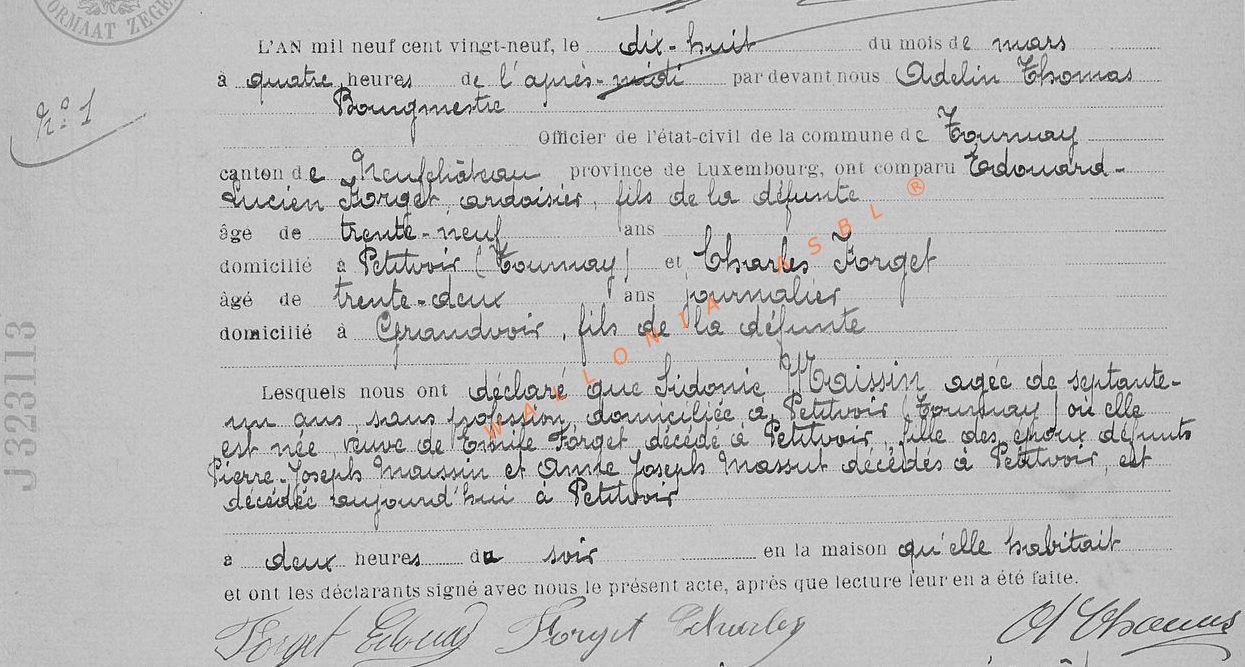 ORMAAT ZEGE
L'AN mil neuf cent vingt-neuf, le dix-huit du mois de mars
à quatre heures de l'après-midi par devant nous Adelin Thomas
Bourgmestre
N° 1
Officier de l'état-civil de la commune de Tournay
canton de Neufchâteau province de Luxembourg, ont comparu Edouard-
Lucien Forget, ardoisier, fils de la défunte
âge de trente-neuf ans
domicilié à Petitvoir (Tournay) et Charles Forget
âgé de trente-deux ans journalier
domicilié à Grandvoir, fils de la défunte
Lesquels nous ont déclaré que Sidonie Maissin agée de septante-
un ans, sans profession, domiciliée à Petitvoir (Tournay) où elle
est née, veuve de Emile Forget décédé à Petitvoir, fille des époux défunts
Pierre-Joseph Maissin et Anne Joseph Massut décédés à Petitvoir, est
décédée aujourd'hui à Petitvoir
à deux heures du soir en la maison qu'elle habitait
et ont les déclarants signé avec nous le présent acte, après que lecture leur en a été faite.
Forget Edouard Forget Charles A Thomas
J 323113
WALLONIA ASBL ®